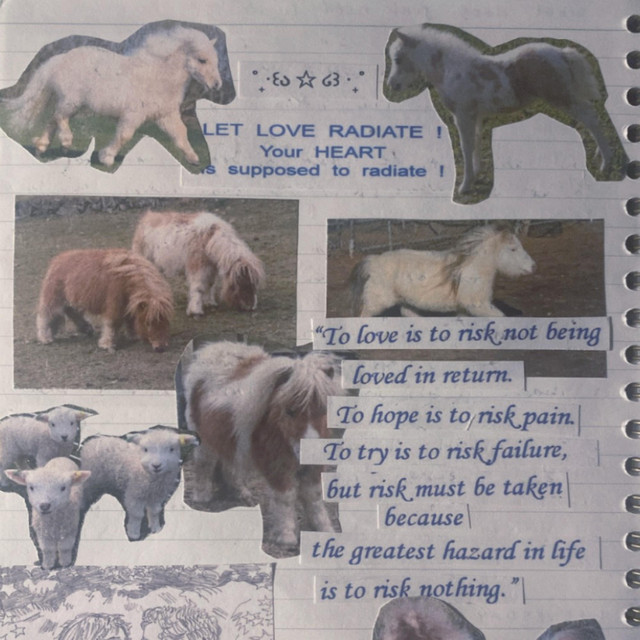 ˚‧꒰ა ☆ ໒꒱‧˚
LET LOVE RADIATE !
Your HEART
is supposed to radiate !
“To love is to risk not being
loved in return.
To hope is to risk pain.
To try is to risk failure,
but risk must be taken
because
the greatest hazard in life
is to risk nothing.”